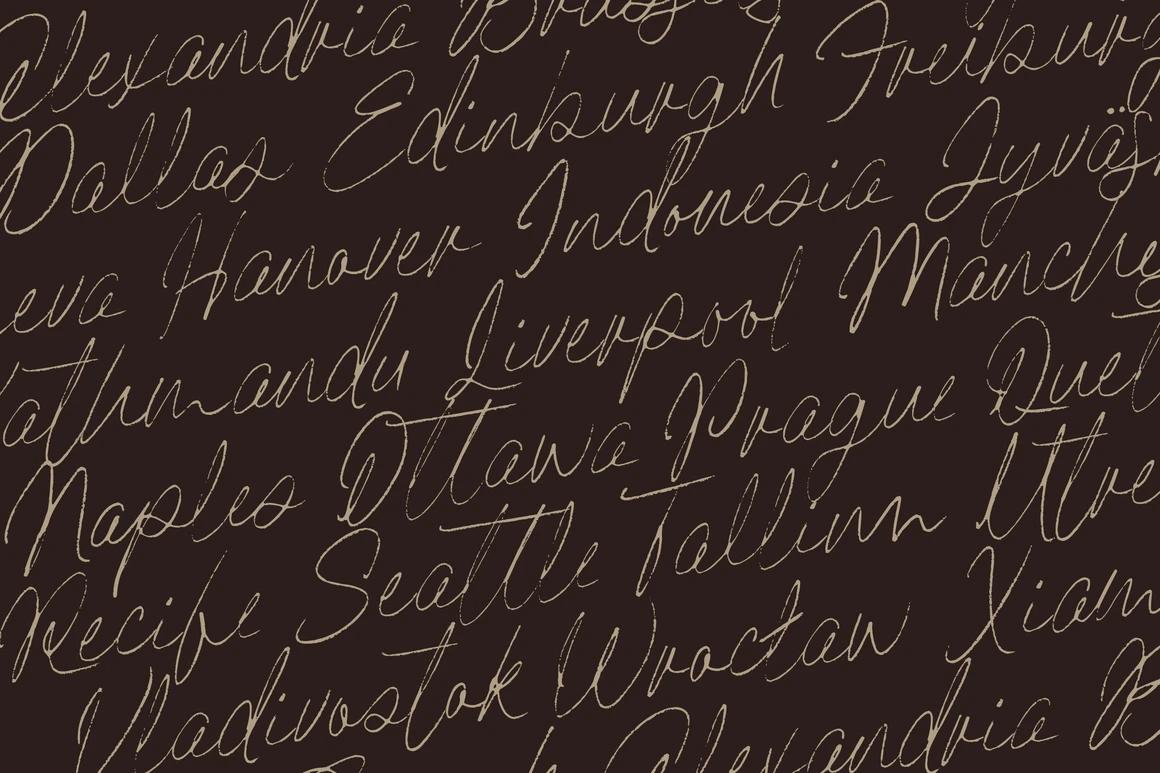 Alexandria
Dallas Edinburgh Freiburg
eva Hanover Indonesia Jyväsk
athmandu Liverpool Manche
Naples Ottawa Prague Quel
Recife Seattle Tallinn Utre
Vladivostok Wrocław Xiam
Alexandria B